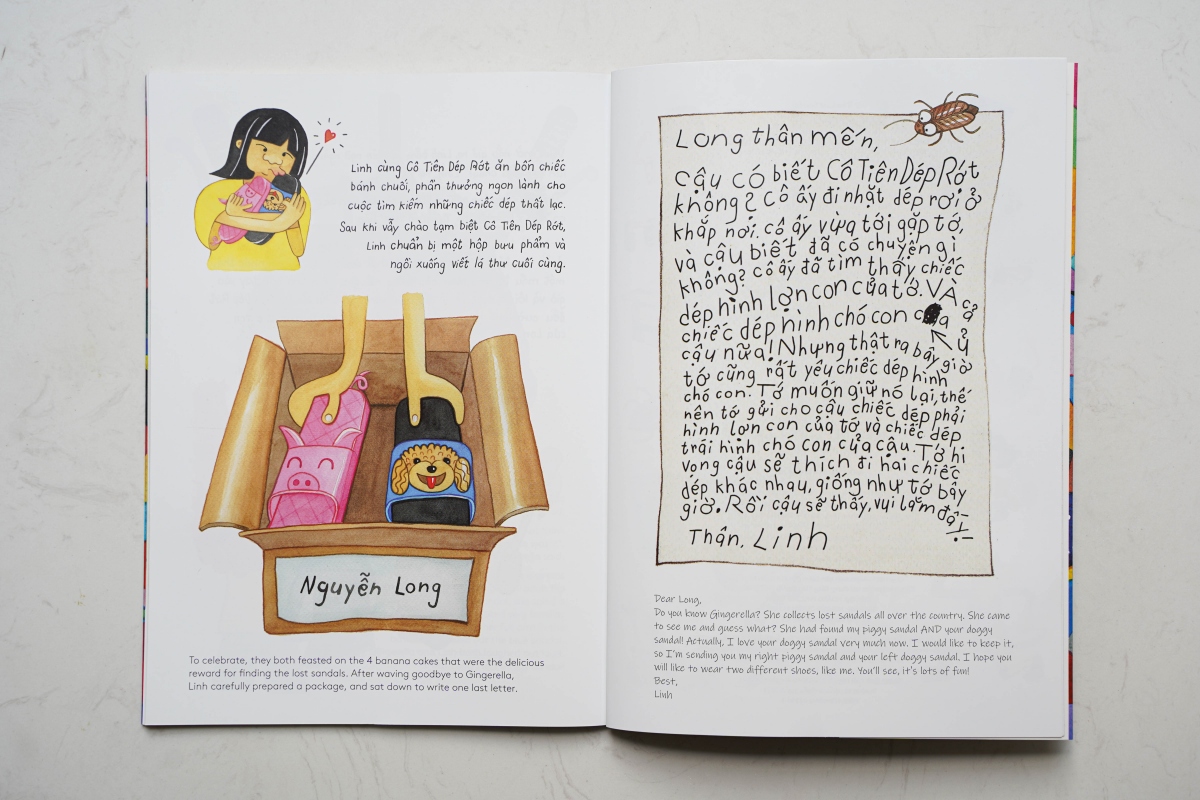 Linh cùng Cô Tiên Dép Rớt ăn bốn chiếc
bánh chuối, phần thưởng ngon lành cho
cuộc tìm kiếm những chiếc dép thất lạc.
Sau khi vẫy chào tạm biệt Cô Tiên Dép Rớt,
Linh chuẩn bị một hộp bưu phẩm và
ngồi xuống viết lá thư cuối cùng.
Nguyễn Long
To celebrate, they both feasted on the 4 banana cakes that were the delicious
reward for finding the lost sandals. After waving goodbye to Gingerella,
Linh carefully prepared a package, and sat down to write one last letter.
Long thân mến,
cậu có biết Cô Tiên Dép Rớt
không? Cô ấy đi nhặt dép rơi ở
khắp nơi. cô ấy vừa tới gặp tớ,
và cậu biết đã có chuyện gì
không? cô ấy đã tìm thấy chiếc
dép hình lợn con của tớ. VÀ cả
chiếc dép hình chó con của
cậu nữa! Nhưng thật ra bây giờ
tớ cũng rất yêu chiếc dép hình
chó con. Tớ muốn giữ nó lại, thế
nên tớ gửi cho cậu chiếc dép phải
hình lợn con của tớ và chiếc dép
trái hình chó con của cậu. Tớ hi
vọng cậu sẽ thích đi hai chiếc
dép khác nhau, giống như tớ bây
giờ. Rồi cậu sẽ thấy, vui lắm đấy!
Thân, Linh
Dear Long,
Do you know Gingerella? She collects lost sandals all over the country. She came
to see me and guess what? She had found my piggy sandal AND your doggy
sandal! Actually, I love your doggy sandal very much now. I would like to keep it,
so I'm sending you my right piggy sandal and your left doggy sandal. I hope you
will like to wear two different shoes, like me. You'll see, it's lots of fun!
Best,
Linh